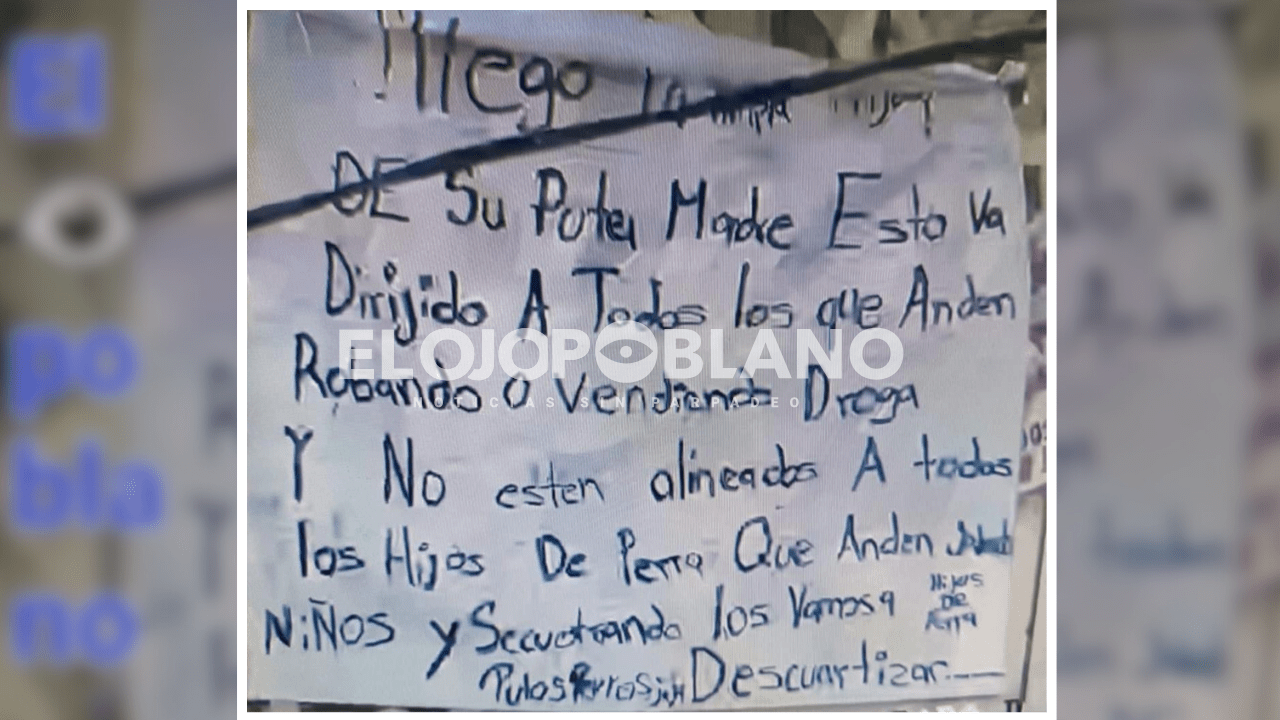 !llego la limpia Hijos
DE Su Puta Madre Esto Va
Dirijido A Todos los que Anden
Robando O Vendiendo Droga
Y No esten alineados A todos
los Hijos De Perra Que Anden
NiÑOS y Secuestrando los Vamos a
Hijos
DE
Perra
Putos Perros Descuartizar.
ELOJOPOBLANO
NOTICIAS SIN PARPADEO
El
po
bla
no